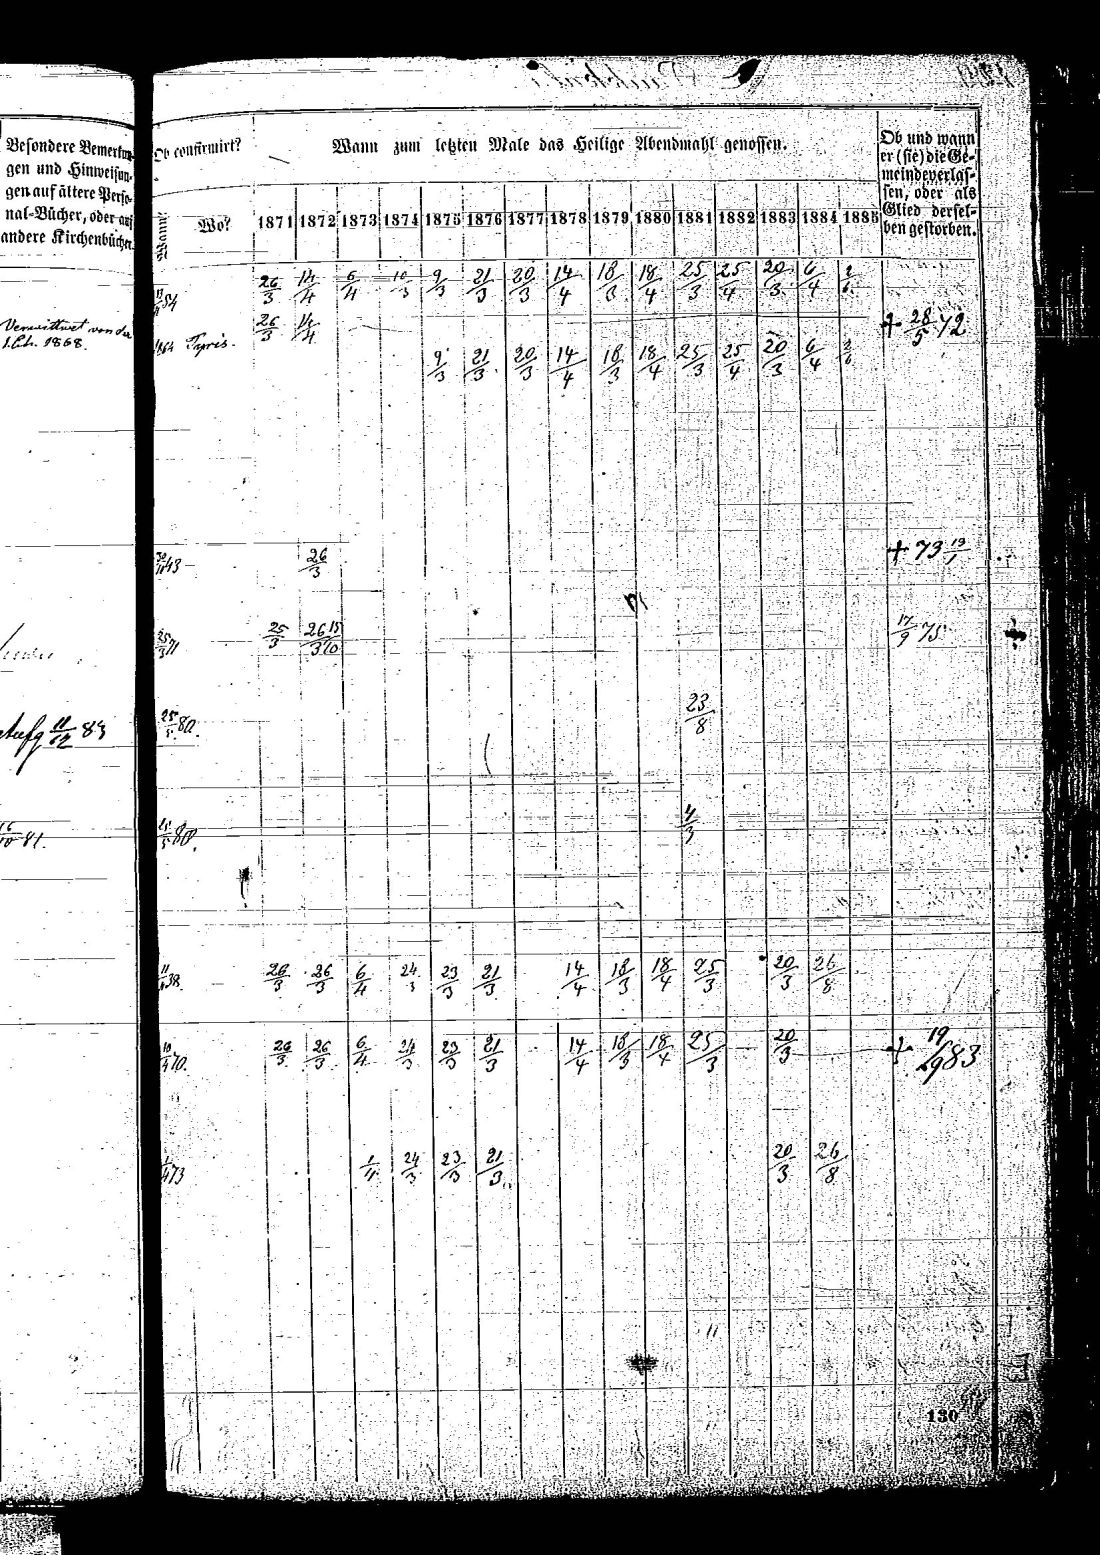 Besondere Bemerkun-
gen und Hinweisun-
gen auf ältere Perso-
nal-Bücher, oder auf
andere Kirchenbücher.
Ob confirmirt?
Wann zum letzten Male das Heilige Abendmahl genossen.
Ob und wann
er (sie) die Ge-
meinde verlas-
sen, oder als
Glied dersel-
ben gestorben.
Wann? Wo? 1871 1872 1873 1874 1875 1876 1877 1878 1879 1880 1881 1882 1883 1884 1885
26/3 14/4 6/4 10/3 9/3 21/3 20/3 14/4 18/3 18/4 25/3 25/4 20/3 6/4
26/3 14/4 + 28/5 72
Verwittwet von der
1868.
1864 9/3 21/3 20/3 14/4 18/3 18/4 25/3 25/4 20/3 6/4
43 26/3 + 73 19/1
25/3 71 25/3 26/3 15/10 17/9 75
11/12 83 80. 23/8
81. 80. 4/3
38. 26/3 26/3 6/4 24/3 23/3 21/3 14/4 18/3 18/4 25/3 20/3 26/8
70. 26/3 26/3 6/4 24/3 23/3 21/3 14/4 18/3 18/4 25/3 20/3 + 19/9 83
1/4 73 1/4 24/3 23/3 21/3 20/3 26/8
130